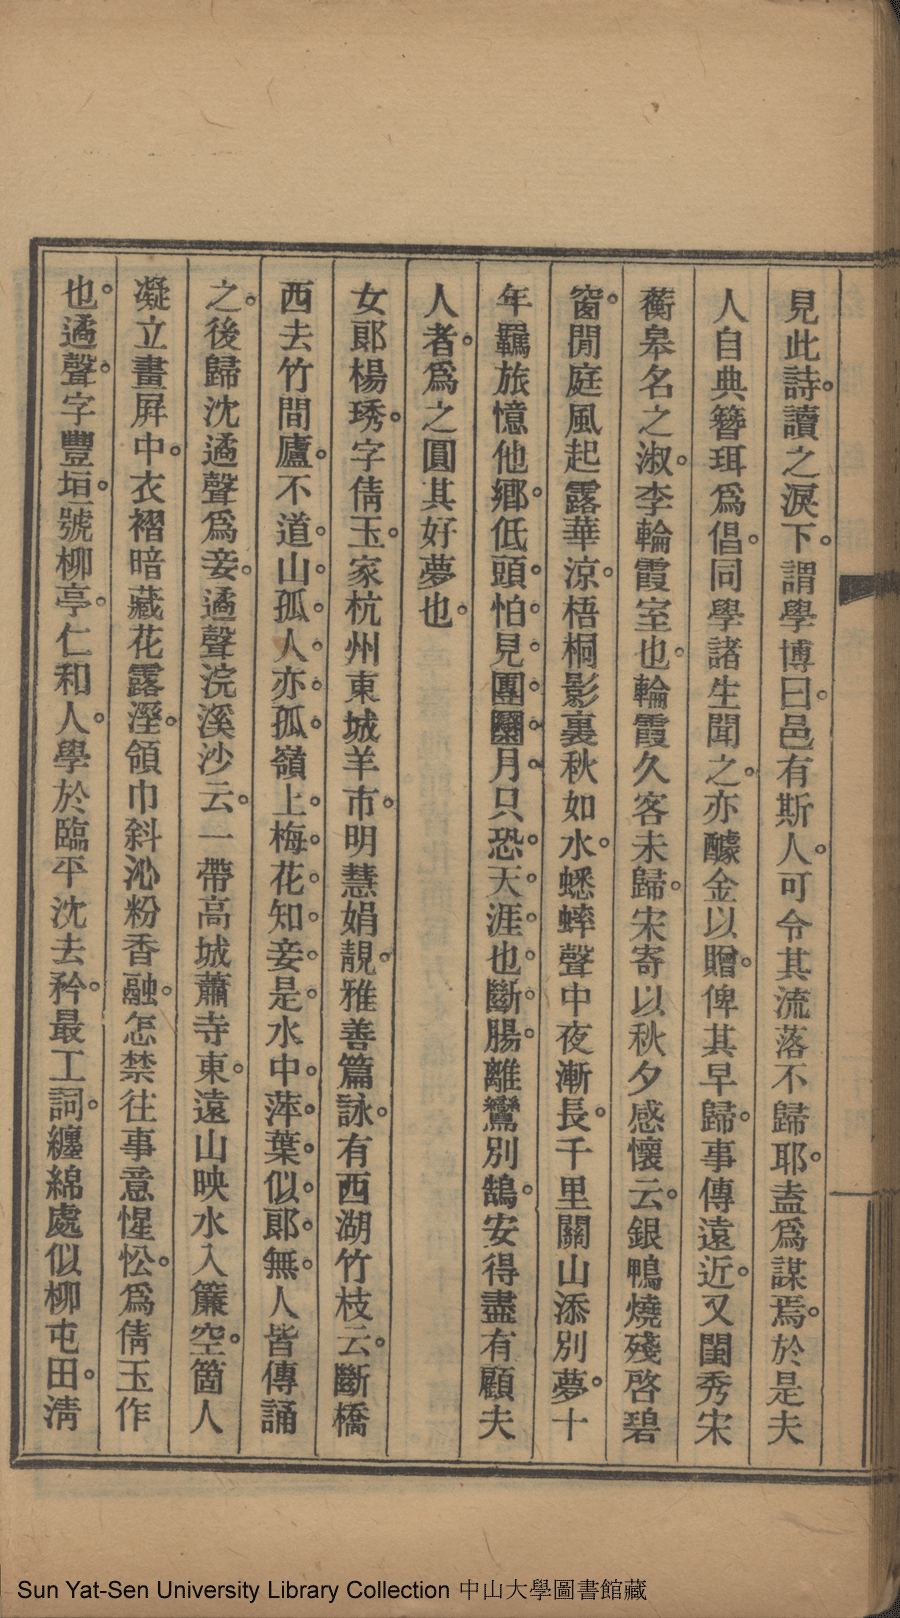 見此詩。讀之淚下。謂學博曰。邑有斯人。可令其流落不歸耶。盍爲謀焉。於是夫
人自典簪珥爲倡。同學諸生聞之。亦醵金以贈。俾其早歸。事傳遠近。又閨秀宋
蘅皋名之淑。李輪霞室也。輪霞久客未歸。宋寄以秋夕感懷云。銀鴨燒殘啓碧
窗。閒庭風起露華涼。梧桐影裏秋如水。蟋蟀聲中夜漸長。千里關山添別夢。十
年羈旅憶他鄉。低頭怕見團圞月。只恐天涯也斷腸。離鸞別鵠。安得盡有顧夫
人者。爲之圓其好夢也。
女郞楊琇。字倩玉。家杭州東城羊市。明慧娟靚。雅善篇詠。有西湖竹枝云。斷橋
西去竹間廬。不道山孤人亦孤。嶺上梅花知妾是。水中萍葉似郞無。人皆傳誦
之。後歸沈遹聲爲妾。遹聲浣溪沙云。一帶高城蕭寺東。遠山映水入簾空。箇人
凝立畫屏中。衣褶暗藏花露溼。領巾斜沁粉香融。怎禁往事意惺忪。爲倩玉作
也。遹聲字豐垣。號柳亭。仁和人。學於臨平沈去矜。最工詞。纏綿處似柳屯田。淸
Sun Yat-Sen University Library Collection 中山大學圖書館藏